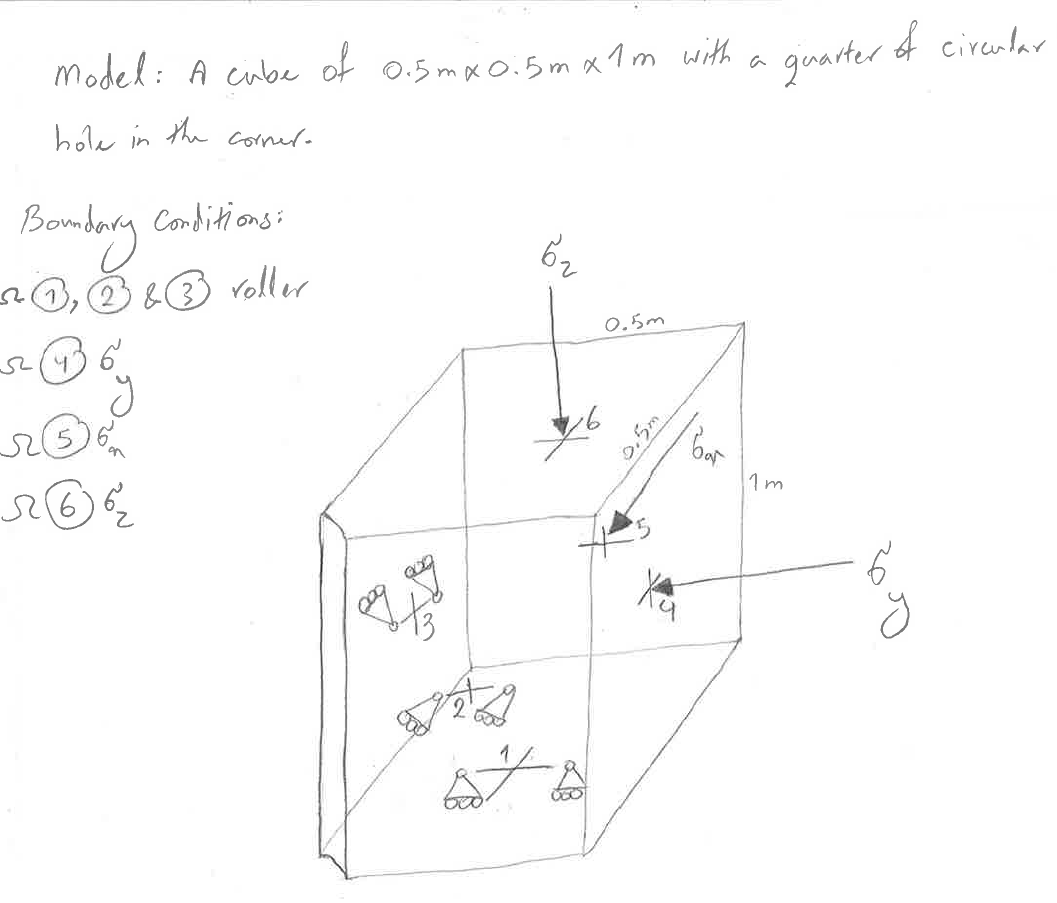 Model: A cube of 0.5m x 0.5m x 1m with a quarter of circular
hole in the corner.
Boundary Conditions:
Ω ①, ② & ③ roller
Ω ④ σy
Ω ⑤ σx
Ω ⑥ σz
σz
0.5m
6
0.5m
σx
1m
5
σy
4
3
2
1